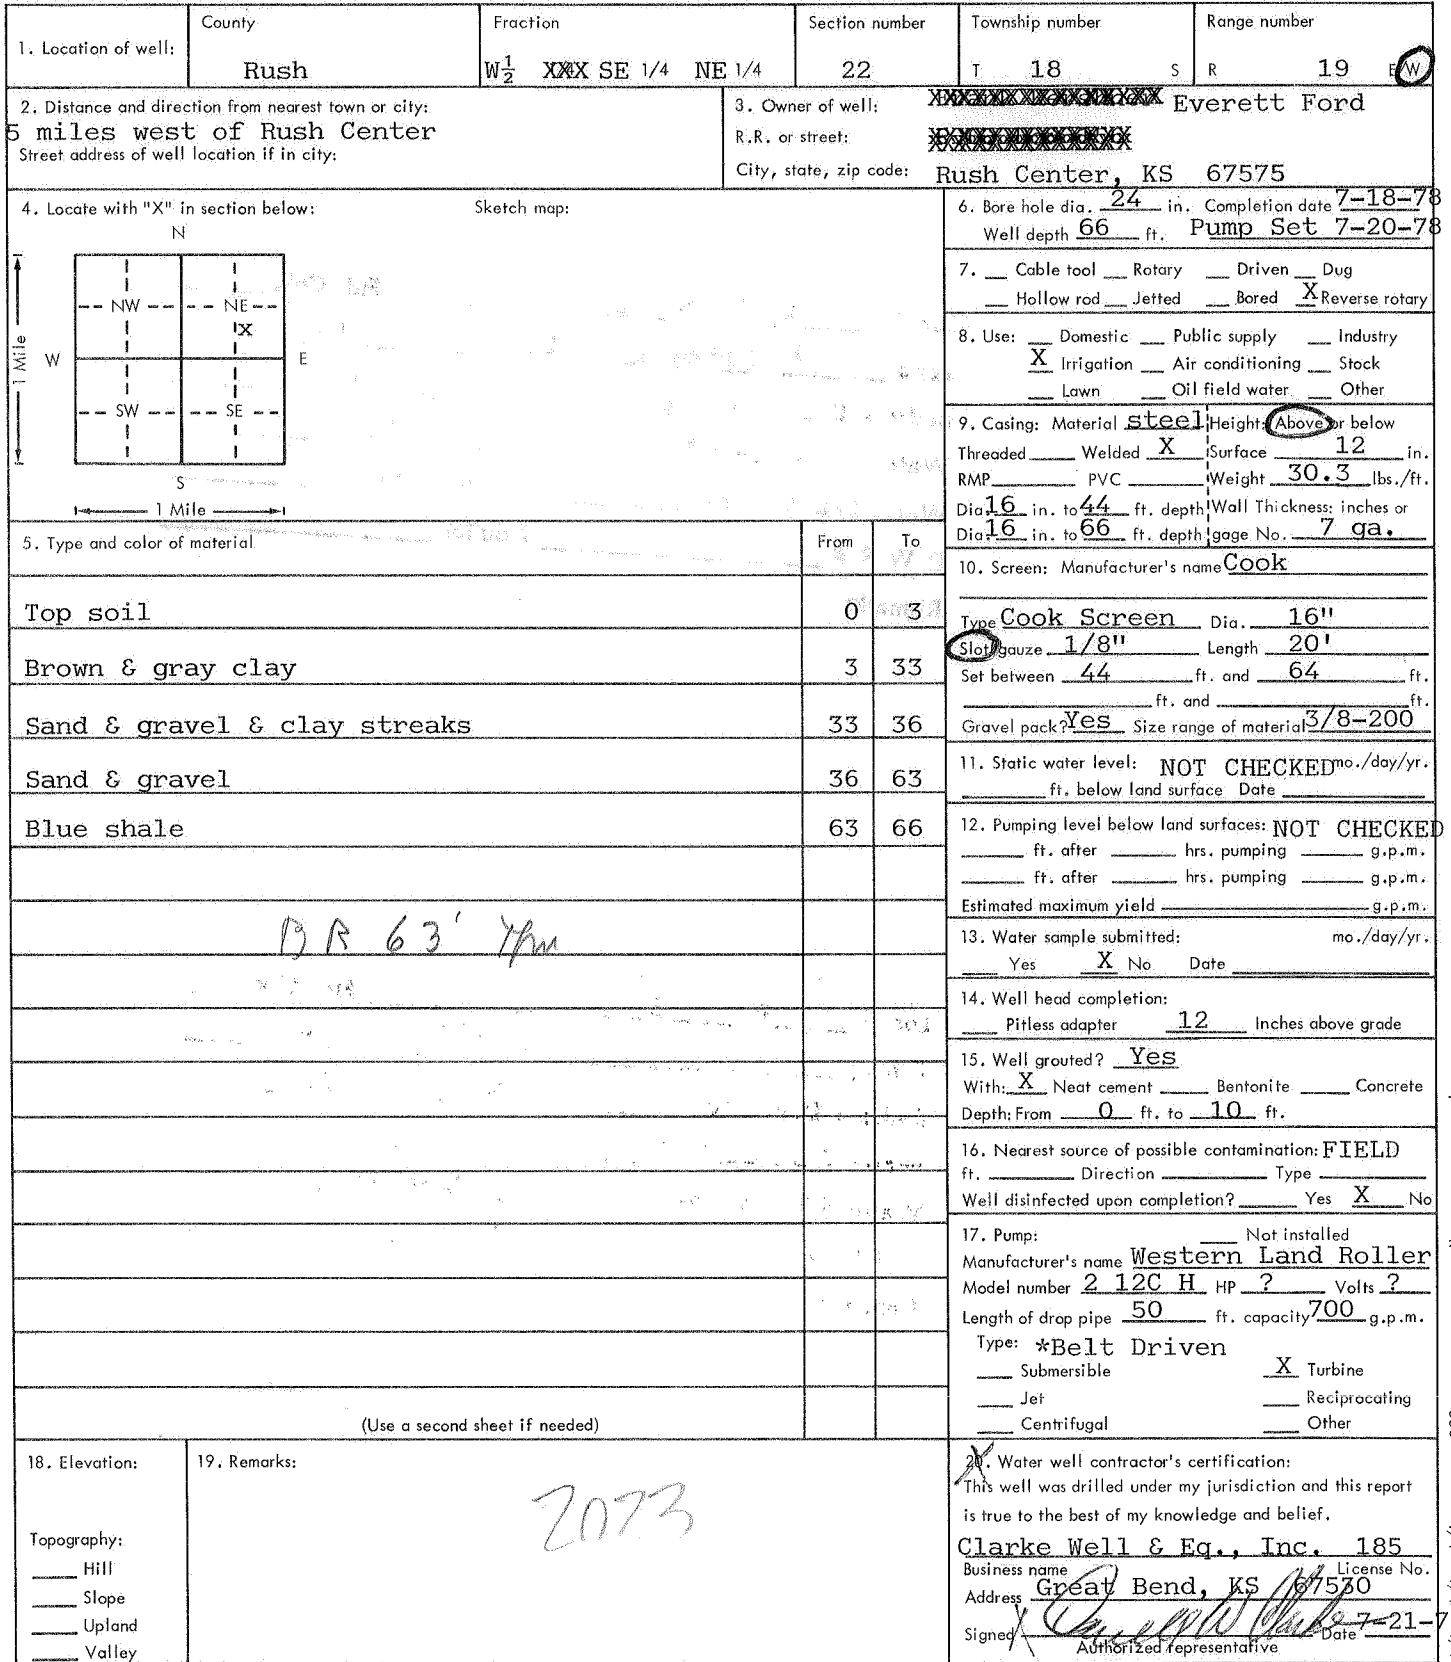 1. Location of well:
County
Rush
Fraction
W½ SE 1/4 NE 1/4
Section number
22
Township number
T 18 S
Range number
R 19 E W
2. Distance and direction from nearest town or city:
5 miles west of Rush Center
Street address of well location if in city:
3. Owner of well: Everett Ford
R.R. or street:
City, state, zip code: Rush Center, KS 67575
4. Locate with "X" in section below:
Sketch map:
N
NW NE
X
1 Mile
W E
SW SE
S
1 Mile
5. Type and color of material From To
Top soil 0 3
Brown & gray clay 3 33
Sand & gravel & clay streaks 33 36
Sand & gravel 36 63
Blue shale 63 66
BR 63'
(Use a second sheet if needed)
6. Bore hole dia. 24 in. Completion date 7-18-78
Well depth 66 ft. Pump Set 7-20-78
7. Cable tool Rotary Driven Dug
Hollow rod Jetted Bored X Reverse rotary
8. Use: Domestic Public supply Industry
X Irrigation Air conditioning Stock
Lawn Oil field water Other
9. Casing: Material steel Height: Above or below
Threaded Welded X Surface 12 in.
RMP PVC Weight 30.3 lbs./ft.
Dia. 16 in. to 44 ft. depth Wall Thickness: inches or
Dia. 16 in. to 66 ft. depth gage No. 7 ga.
10. Screen: Manufacturer's name Cook
Type Cook Screen Dia. 16"
Slot/gauze 1/8" Length 20'
Set between 44 ft. and 64 ft.
ft. and ft.
Gravel pack? Yes Size range of material 3/8-200
11. Static water level: NOT CHECKED mo./day/yr.
ft. below land surface Date
12. Pumping level below land surfaces: NOT CHECKED
ft. after hrs. pumping g.p.m.
ft. after hrs. pumping g.p.m.
Estimated maximum yield g.p.m.
13. Water sample submitted: mo./day/yr.
Yes X No Date
14. Well head completion:
Pitless adapter 12 Inches above grade
15. Well grouted? Yes
With: X Neat cement Bentonite Concrete
Depth: From 0 ft. to 10 ft.
16. Nearest source of possible contamination: FIELD
ft. Direction Type
Well disinfected upon completion? Yes X No
17. Pump: Not installed
Manufacturer's name Western Land Roller
Model number 2 12C H HP ? Volts ?
Length of drop pipe 50 ft. capacity 700 g.p.m.
Type: *Belt Driven
Submersible X Turbine
Jet Reciprocating
Centrifugal Other
18. Elevation:
Topography:
Hill
Slope
Upland
Valley
19. Remarks:
2023
20. Water well contractor's certification:
This well was drilled under my jurisdiction and this report
is true to the best of my knowledge and belief.
Clarke Well & Eq., Inc. 185
Business name License No.
Address Great Bend, KS 67530
Signed Date 7-21-7
Authorized representative